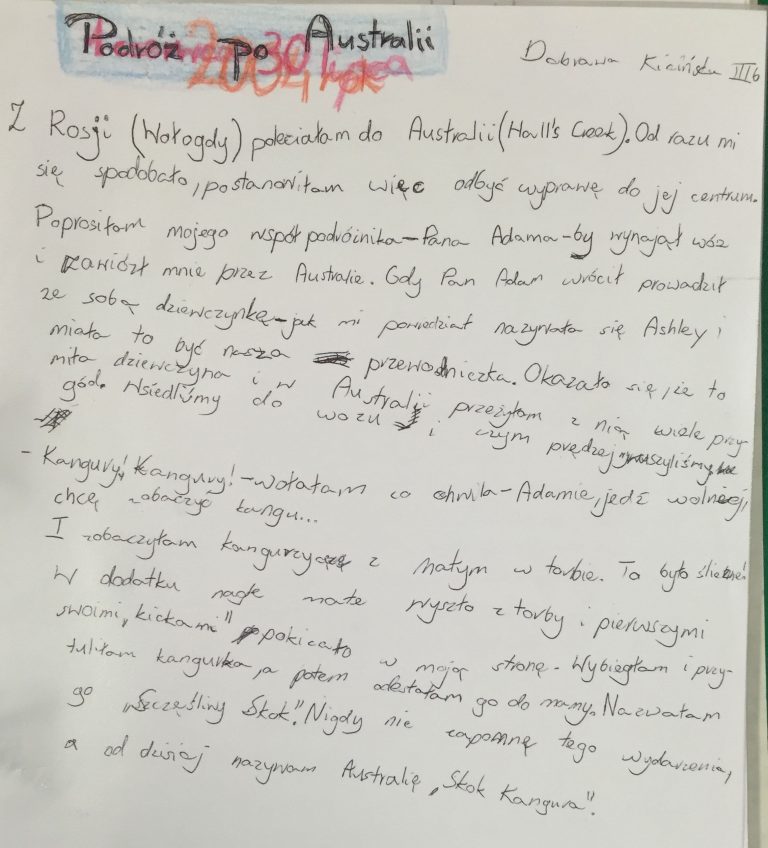 Podróż po Australii
2004 30
Dobrawa Kicińska III6
Z Rosji (Wołogdy) poleciałam do Australii (Hall's Creek). Od razu mi
się spodobało, postanowiłam więc odbyć wyprawę do jej centrum.
Poprosiłam mojego współpodróżnika – Pana Adama – by wynajął wóz
i zawiózł mnie przez Australie. Gdy Pan Adam wrócił prowadził
ze sobą dziewczynkę – jak mi powiedział nazywała się Ashley i
miała to być nasza przewodniczka. Okazało się, że to
miła dziewczyna i w Australii przeżyłam z nią wiele przy-
gód. Wsiedliśmy do wozu i czym prędzej ruszyliśmy
- Kangury! Kangury! – wołałam co chwila – Adamie, jedź wolniej,
chcę zobaczyć kangu...
I zobaczyłam kangurzycę z małym w torbie. To było śliczne!
W dodatku nagle małe wyszło z torby i pierwszymi
swoimi „kickami" pokicało w moją stronę. Wybiegłam i przy-
tuliłam kangurka, a potem odesłałam go do mamy. Nazwałam
go „Szczęśliwy Skok". Nigdy nie zapomnę tego wydarzenia,
a od dzisiaj nazywam Australię „Skok Kangura".